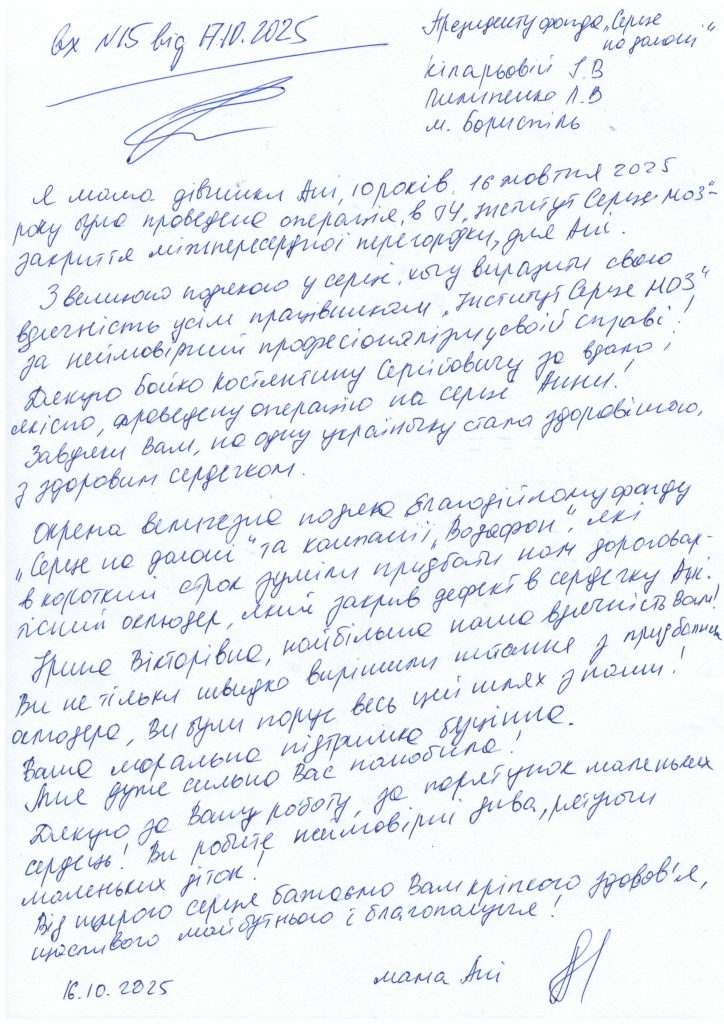 вх №15 від 17.10.2025
Президенту фонда „Серце
на долоні“
Кіпарьовій І.В
Пилипенко Л.В
м. Бориспіль
Я мама дівчинки Ані, 10 років. 16 жовтня 2025
року була проведена операція, в ДУ „Інститут Серця МОЗ“-
закриття міжпересердної перегородки, для Ані.
З великою подякою у серці, хочу виразити свою
вдячність усім працівникам „Інститут Серця МОЗ“
за неймовірний професіоналізм у своїй справі!
Дякую Бойко Костянтину Сергійовичу за вдало і
якісно, проведену операцію на серце Анни!
Завдяки Вам, на одну українку стало здоровішою,
з здоровим сердечком.
Окрема величезна подяка благодійному фонду
„Серце на долоні“ та компанії „Водафон“, які
в короткий строк зуміли придбати нам дороговар-
тісний оклюдер, який закрив дефект в сердечку Ані.
Ірина Вікторівна, найбільша наша вдячність Вам!
Ви не тільки швидко вирішили питання з придбанням
оклюдера, Ви були поруч весь цей шлях з нами!
Ваша моральна підтримка безцінна.
Аня дуже сильно Вас полюбила!
Дякую за Вашу роботу, за порятунок маленьких
сердець! Ви робите неймовірні дива, рятуючи
маленьких діток!
Від щирого серця бажаємо Вам кріпкого здоров'я,
щасливого майбутнього і благополуччя!
16.10.2025 мама Ані